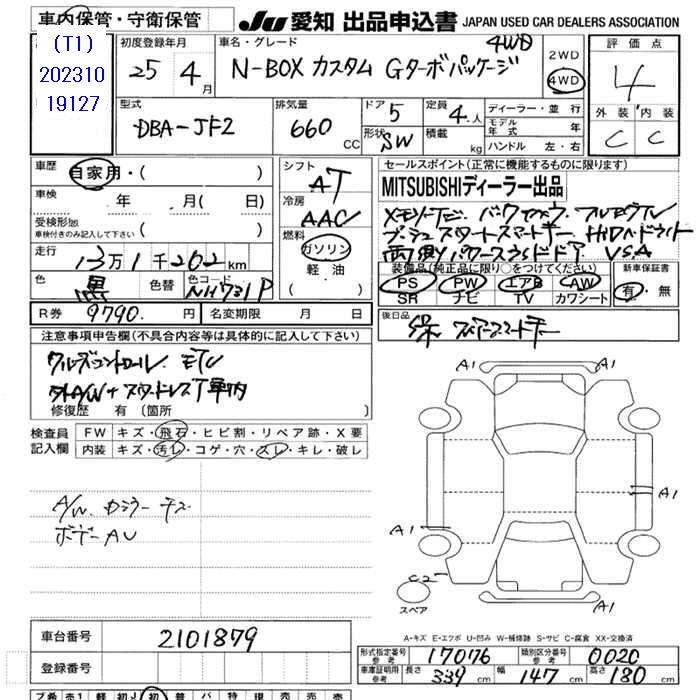 車内保管・守衛保管
JU 愛知 出品申込書 JAPAN USED CAR DEALERS ASSOCIATION
(T1)
202310
19127
初度登録年月
25年 4月
車名・グレード
N-BOX カスタム Gターボパッケージ 4WD
2WD
4WD
評価点
4
外装 内装
C C
型式
DBA-JF2
排気量
660 CC
ドア
5
形状
SW
定員
4人
積載
kg
ディーラー・並行
モデル年式 年
ハンドル 左・右
車歴
自家用・( )
車検
年 月( 日)
受検形態
車検付きのみ記入して下さい
走行
13万1千202km
色
黒
色替
色コード
NH731P
シフト
AT
冷房
AAC
燃料
ガソリン
軽油
セールスポイント(正常に機能するものに限ります)
MITSUBISHIディーラー出品
プッシュスタートスマートキー HIDヘッドライト
両側パワースライドドア VSA
装備品(純正品に限り○をつけてください)
PS PW エアB AW
SR ナビ TV カワシート
新車保証書
有・無
R券 9790.円 名変期限 月 日
後日品
保 スペアースマートキー
注意事項申告欄(不具合内容等は具体的に記入して下さい)
クルーズコントロール ETC
社外AW+スタッドレスT車内
修復歴 有(箇所 )
検査員
記入欄
FW キズ・飛石・ヒビ割・リペア跡・X要
内装 キズ・汚レ・コゲ・穴・スレ・キレ・破レ
A/W. カラー キズ
ボデーAU
A1
A1
A1
A1
A1
A1
C2
スペア
A-キズ E-エクボ U-凹み W-補修跡 S-サビ C-腐食 XX-交換済
車台番号 2101879
登録番号
形式指定番号 参考 17076 類別区分番号 参考 0020
車庫証明用 参考 長さ 339cm 幅 147cm 高さ 180cm